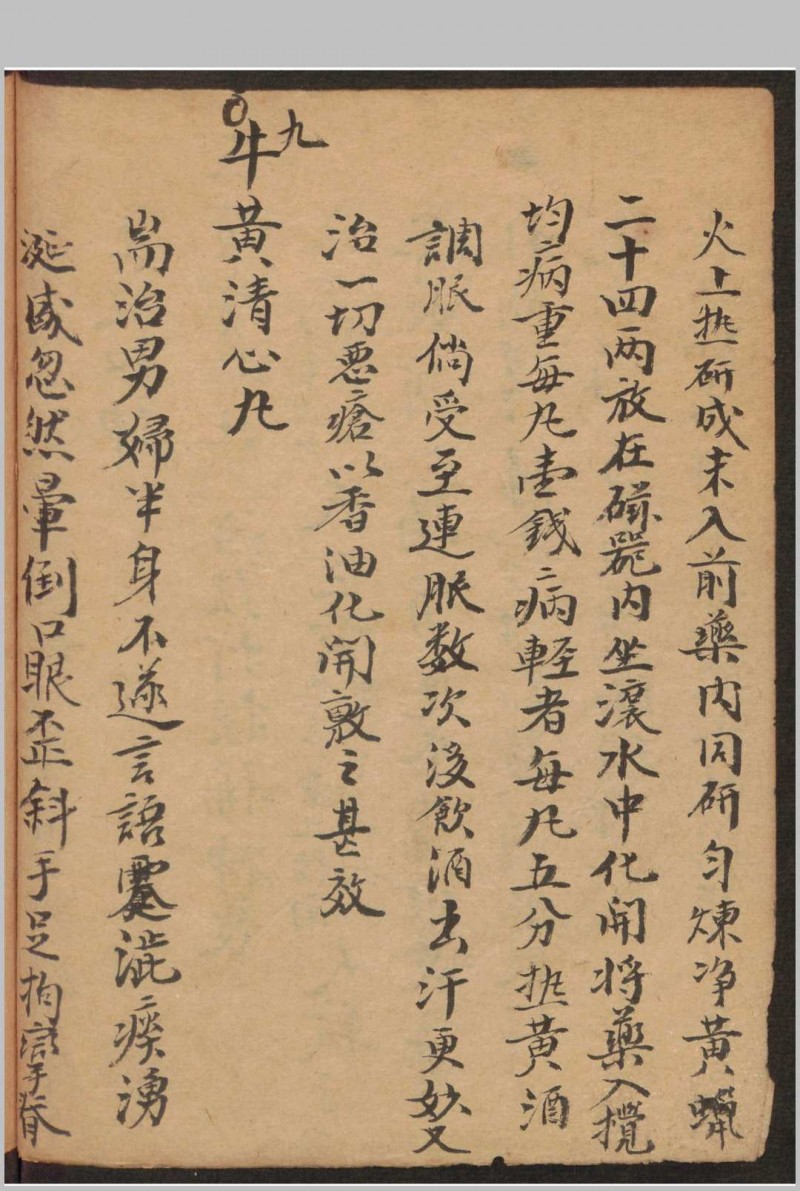 火上热研成末入前藥内同研匀煉净黄蠟
二十四两放在磁器内坐滚水中化開将藥入攪
均病重每丸壹錢病輕者每丸五分热黄酒
調服倘受至連服数次後飲酒出汗更妙又
治一切恶瘡以香油化開敷之甚效
九
○牛黄清心丸
耑治男婦半身不遂言語蹇澁痰湧
涎盛忽然暈倒口眼歪斜手足拘攣脊